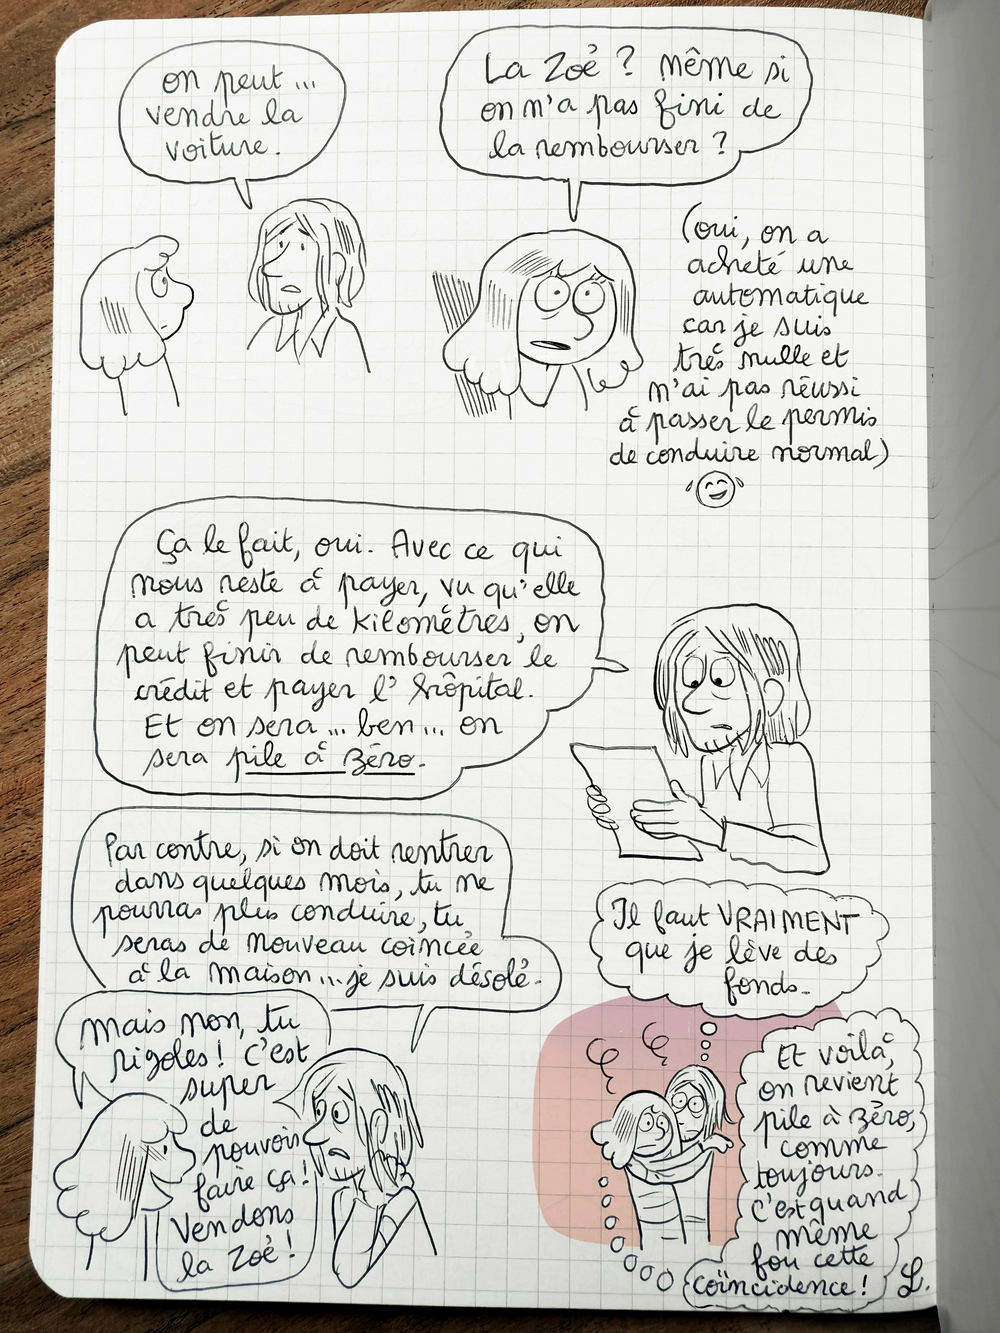 on peut...
vendre la
voiture.
La Zoé ? même si
on n'a pas fini de
la rembourser ?
(oui, on a
acheté une
automatique
car je suis
très nulle et
m'ai pas réussi
à passer le permis
de conduire normal)
Ça le fait, oui. Avec ce qui
nous reste à payer, vu qu'elle
a très peu de kilomètres, on
peut finir de rembourser le
crédit et payer l'hôpital.
Et on sera... ben... on
sera pile à zéro.
Par contre, si on doit rentrer
dans quelques mois, tu ne
pourras plus conduire, tu
seras de nouveau coincée
à la maison... je suis désolé.
Mais non, tu
rigoles ! C'est
super
de
pouvoir
faire ça !
Vendons
la Zoé !
Il faut VRAIMENT
que je lève des
fonds..
Et voilà,
on revient
pile à zéro,
comme
toujours.
C'est quand
même
fou cette
coïncidence !
L.